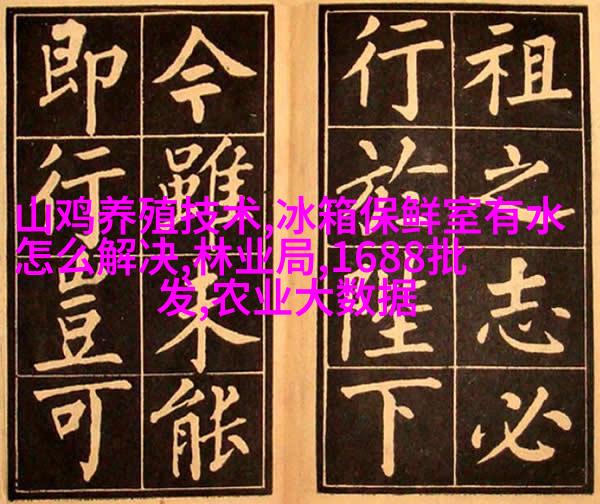 祖之志必
行於陛下
今雖未能
即行豈可
山鸡养殖技术,冰箱保鲜室有水
怎么解决,林业局,1688批
发,农业大数据